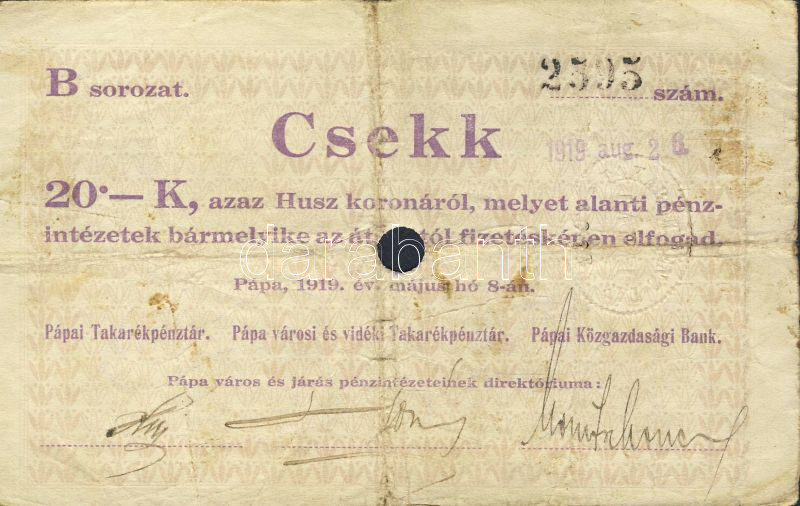 B sorozat. 2595 szám.
Csekk
1919 aug. 26.
20·— K, azaz Husz koronáról, melyet alanti pénz-
intézetek bármelyike az átadótól fizetésképen elfogad.
darabanth
Pápa, 1919. év. május hó 8-án.
Pápai Takarékpénztár. Pápa városi és vidéki Takarékpénztár. Pápai Közgazdasági Bank.
Pápa város és járás pénzintézeteinek direktóriuma: